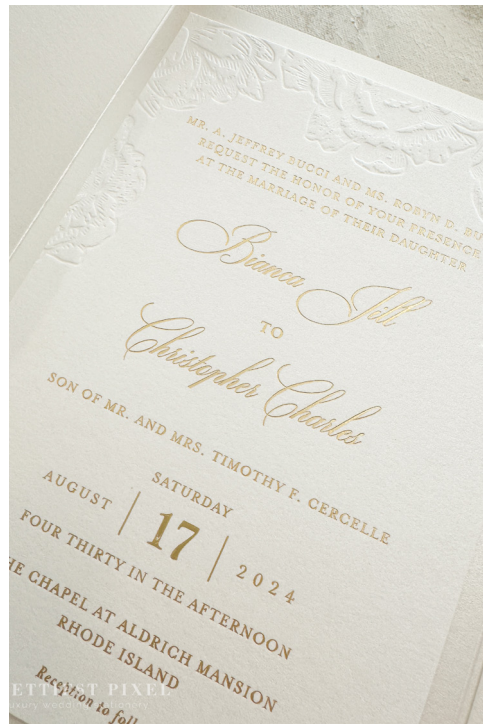 MR. A. JEFFREY BUCCI AND MS. ROBYN D. BU
REQUEST THE HONOR OF YOUR PRESENCE
AT THE MARRIAGE OF THEIR DAUGHTER
Bianca Jill
TO
Christopher Charles
SON OF MR. AND MRS. TIMOTHY F. CERCELLE
SATURDAY
AUGUST | 17 | 2024
FOUR THIRTY IN THE AFTERNOON
HE CHAPEL AT ALDRICH MANSION
RHODE ISLAND
Reception to foll
ETTIEST PIXEL
uxury wedding stationery